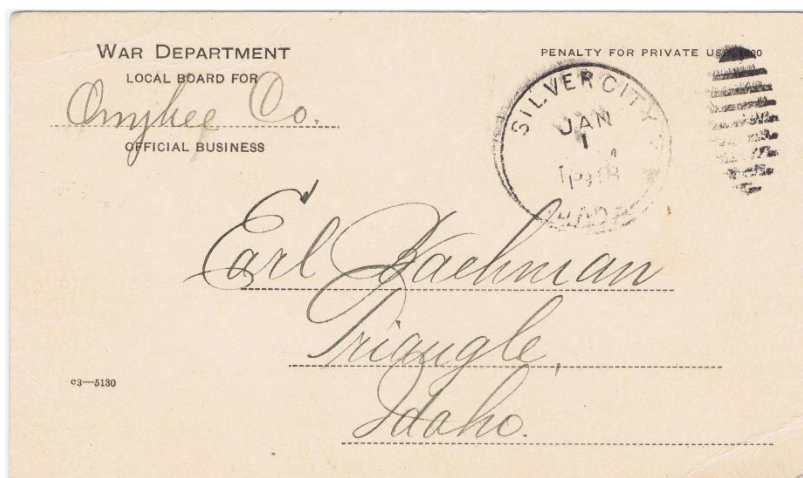 WAR DEPARTMENT
LOCAL BOARD FOR
Owyhee Co.
OFFICIAL BUSINESS
PENALTY FOR PRIVATE USE
SILVER CITY
JAN
1
Earl Bachman
Triangle,
Idaho.
c3—5130